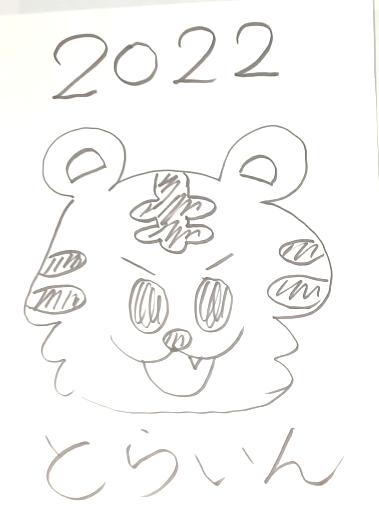 2022
とらいん